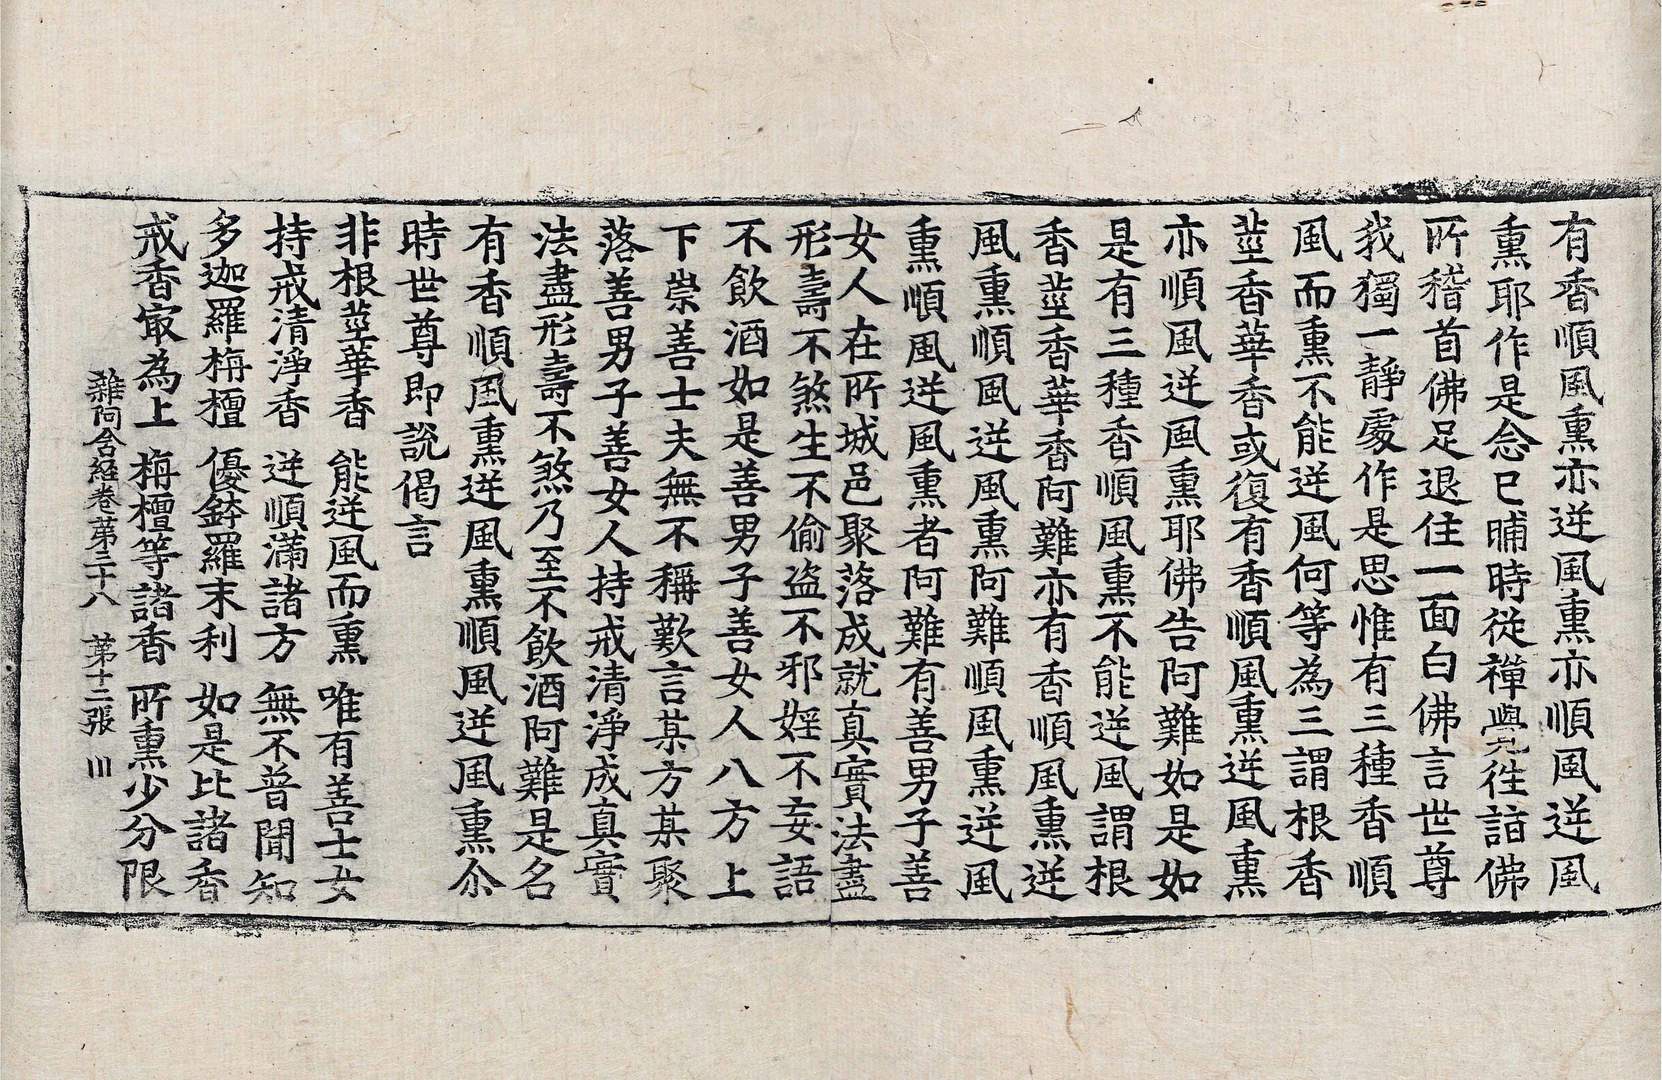 有香順風熏亦逆風熏亦順風逆風
熏耶作是念已晡時從禪覺往詣佛
所稽首佛足退住一面白佛言世尊
我獨一靜處作是思惟有三種香順
風而熏不能逆風何等為三謂根香
莖香華香或復有香順風熏逆風熏
亦順風逆風熏耶佛告阿難如是如
是有三種香順風熏不能逆風謂根
香莖香華香阿難亦有香順風熏逆
風熏順風逆風熏阿難順風熏逆風
熏順風逆風熏者阿難有善男子善
女人在所城邑聚落成就真實法盡
形壽不煞生不偷盜不邪婬不妄語
不飲酒如是善男子善女人八方上
下崇善士夫無不稱歎言某方某聚
落善男子善女人持戒清淨成真實
法盡形壽不煞乃至不飲酒阿難是名
有香順風熏逆風熏順風逆風熏尒
時世尊即說偈言
非根莖華香 能逆風而熏 唯有善士女
持戒清淨香 逆順滿諸方 無不普聞知
多迦羅栴檀 優鉢羅末利 如是比諸香
戒香冣為上 栴檀等諸香 所熏少分限
雜阿含經卷第三十八 第十二張 川